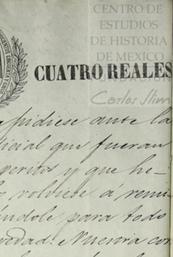 CENTRO DE
ESTUDIOS
DE HISTORIA
DE MEXICO
CUATRO REALES
Carlos Slim
pidiese ante la
icial que fueran
peritos y que he-
volviese á remi-
éndole para todo
vedad! Nuestra con